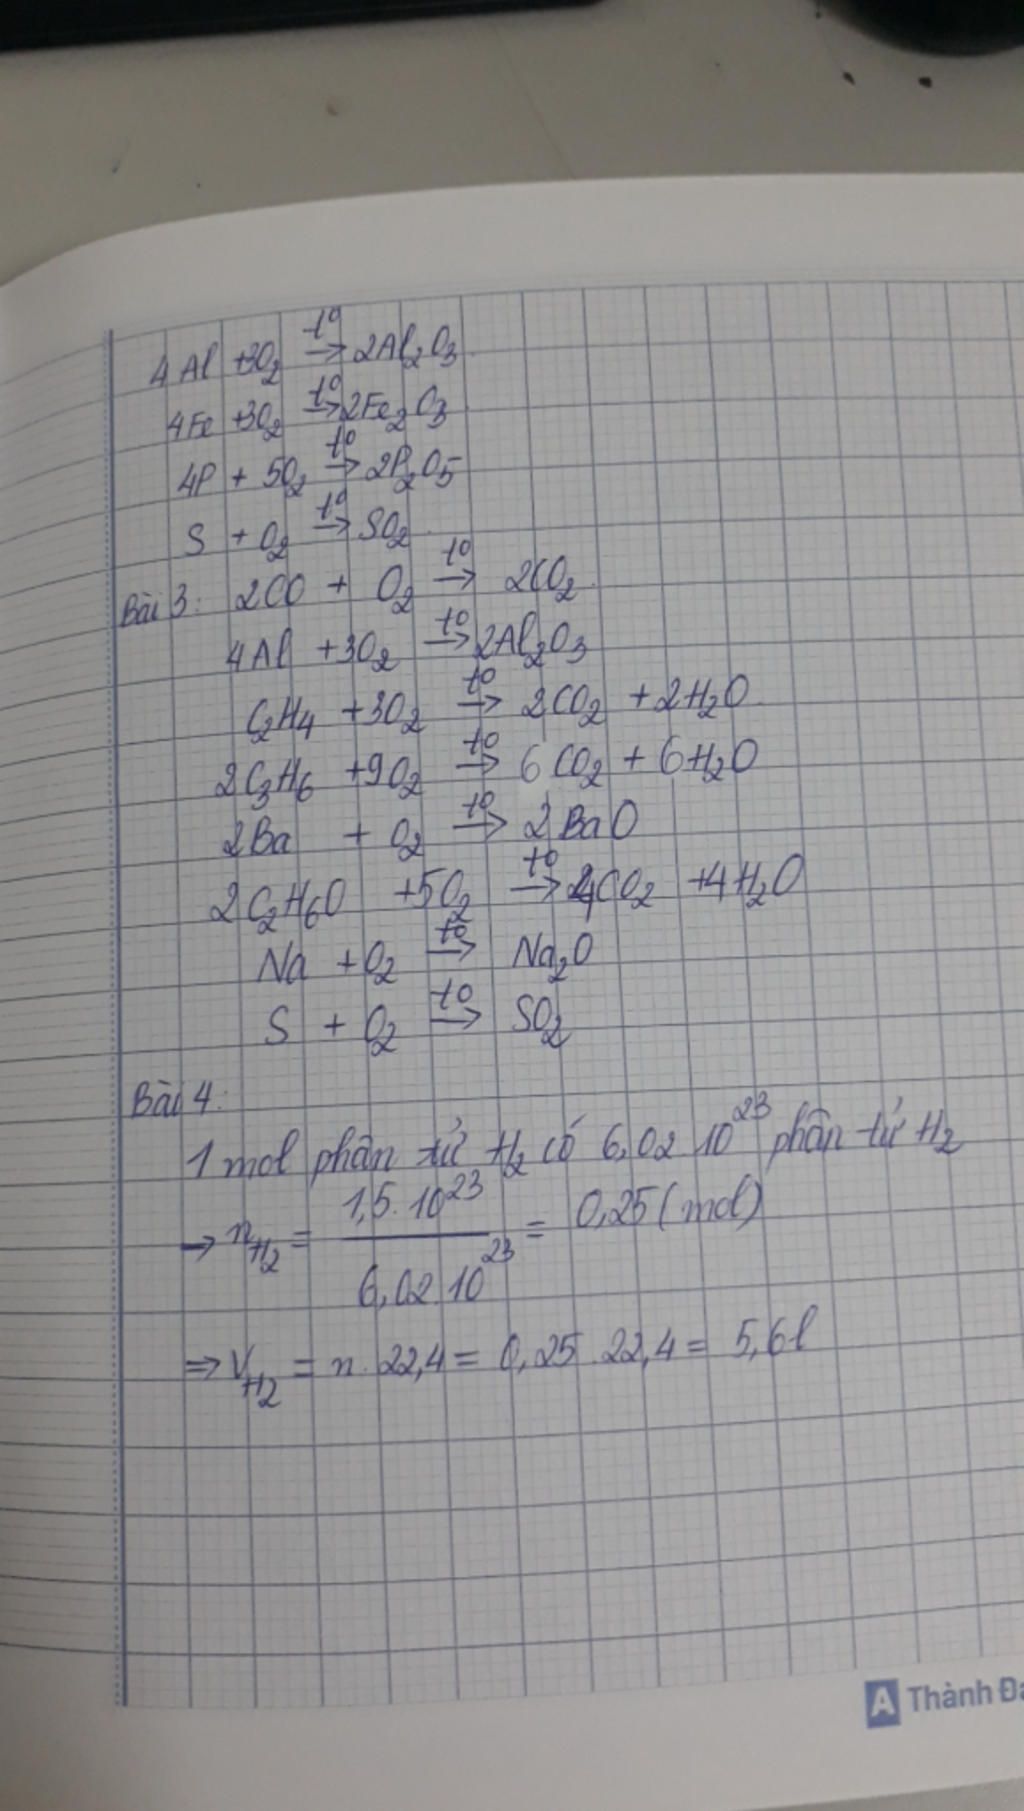 4Al +3O₂ →t⁰ 2Al₂O₃
4Fe +3O₂ →t⁰ 2Fe₂O₃
4P + 5O₂ →t⁰ 2P₂O₅
S + O₂ →t⁰ SO₂
Bài 3: 2CO + O₂ →t⁰ 2CO₂
4Al +3O₂ →t⁰ 2Al₂O₃
C₂H₄ +3O₂ →t⁰ 2CO₂ +2H₂O
2C₃H₆ +9O₂ →t⁰ 6CO₂ + 6H₂O
2Ba + O₂ →t⁰ 2BaO
2C₂H₆O +5O₂ →t⁰ 4CO₂ +4H₂O
Na +O₂ →t⁰ Na₂O
S + O₂ →t⁰ SO₂
Bài 4:
1 mol phân tử H₂ có 6,02.10²³ phân tử H₂
→ n_H₂ = 1,5.10²³ / 6,02.10²³ = 0,25 (mol)
⇒ V_H₂ = n. 22,4 = 0,25.22,4 = 5,6l
A Thành